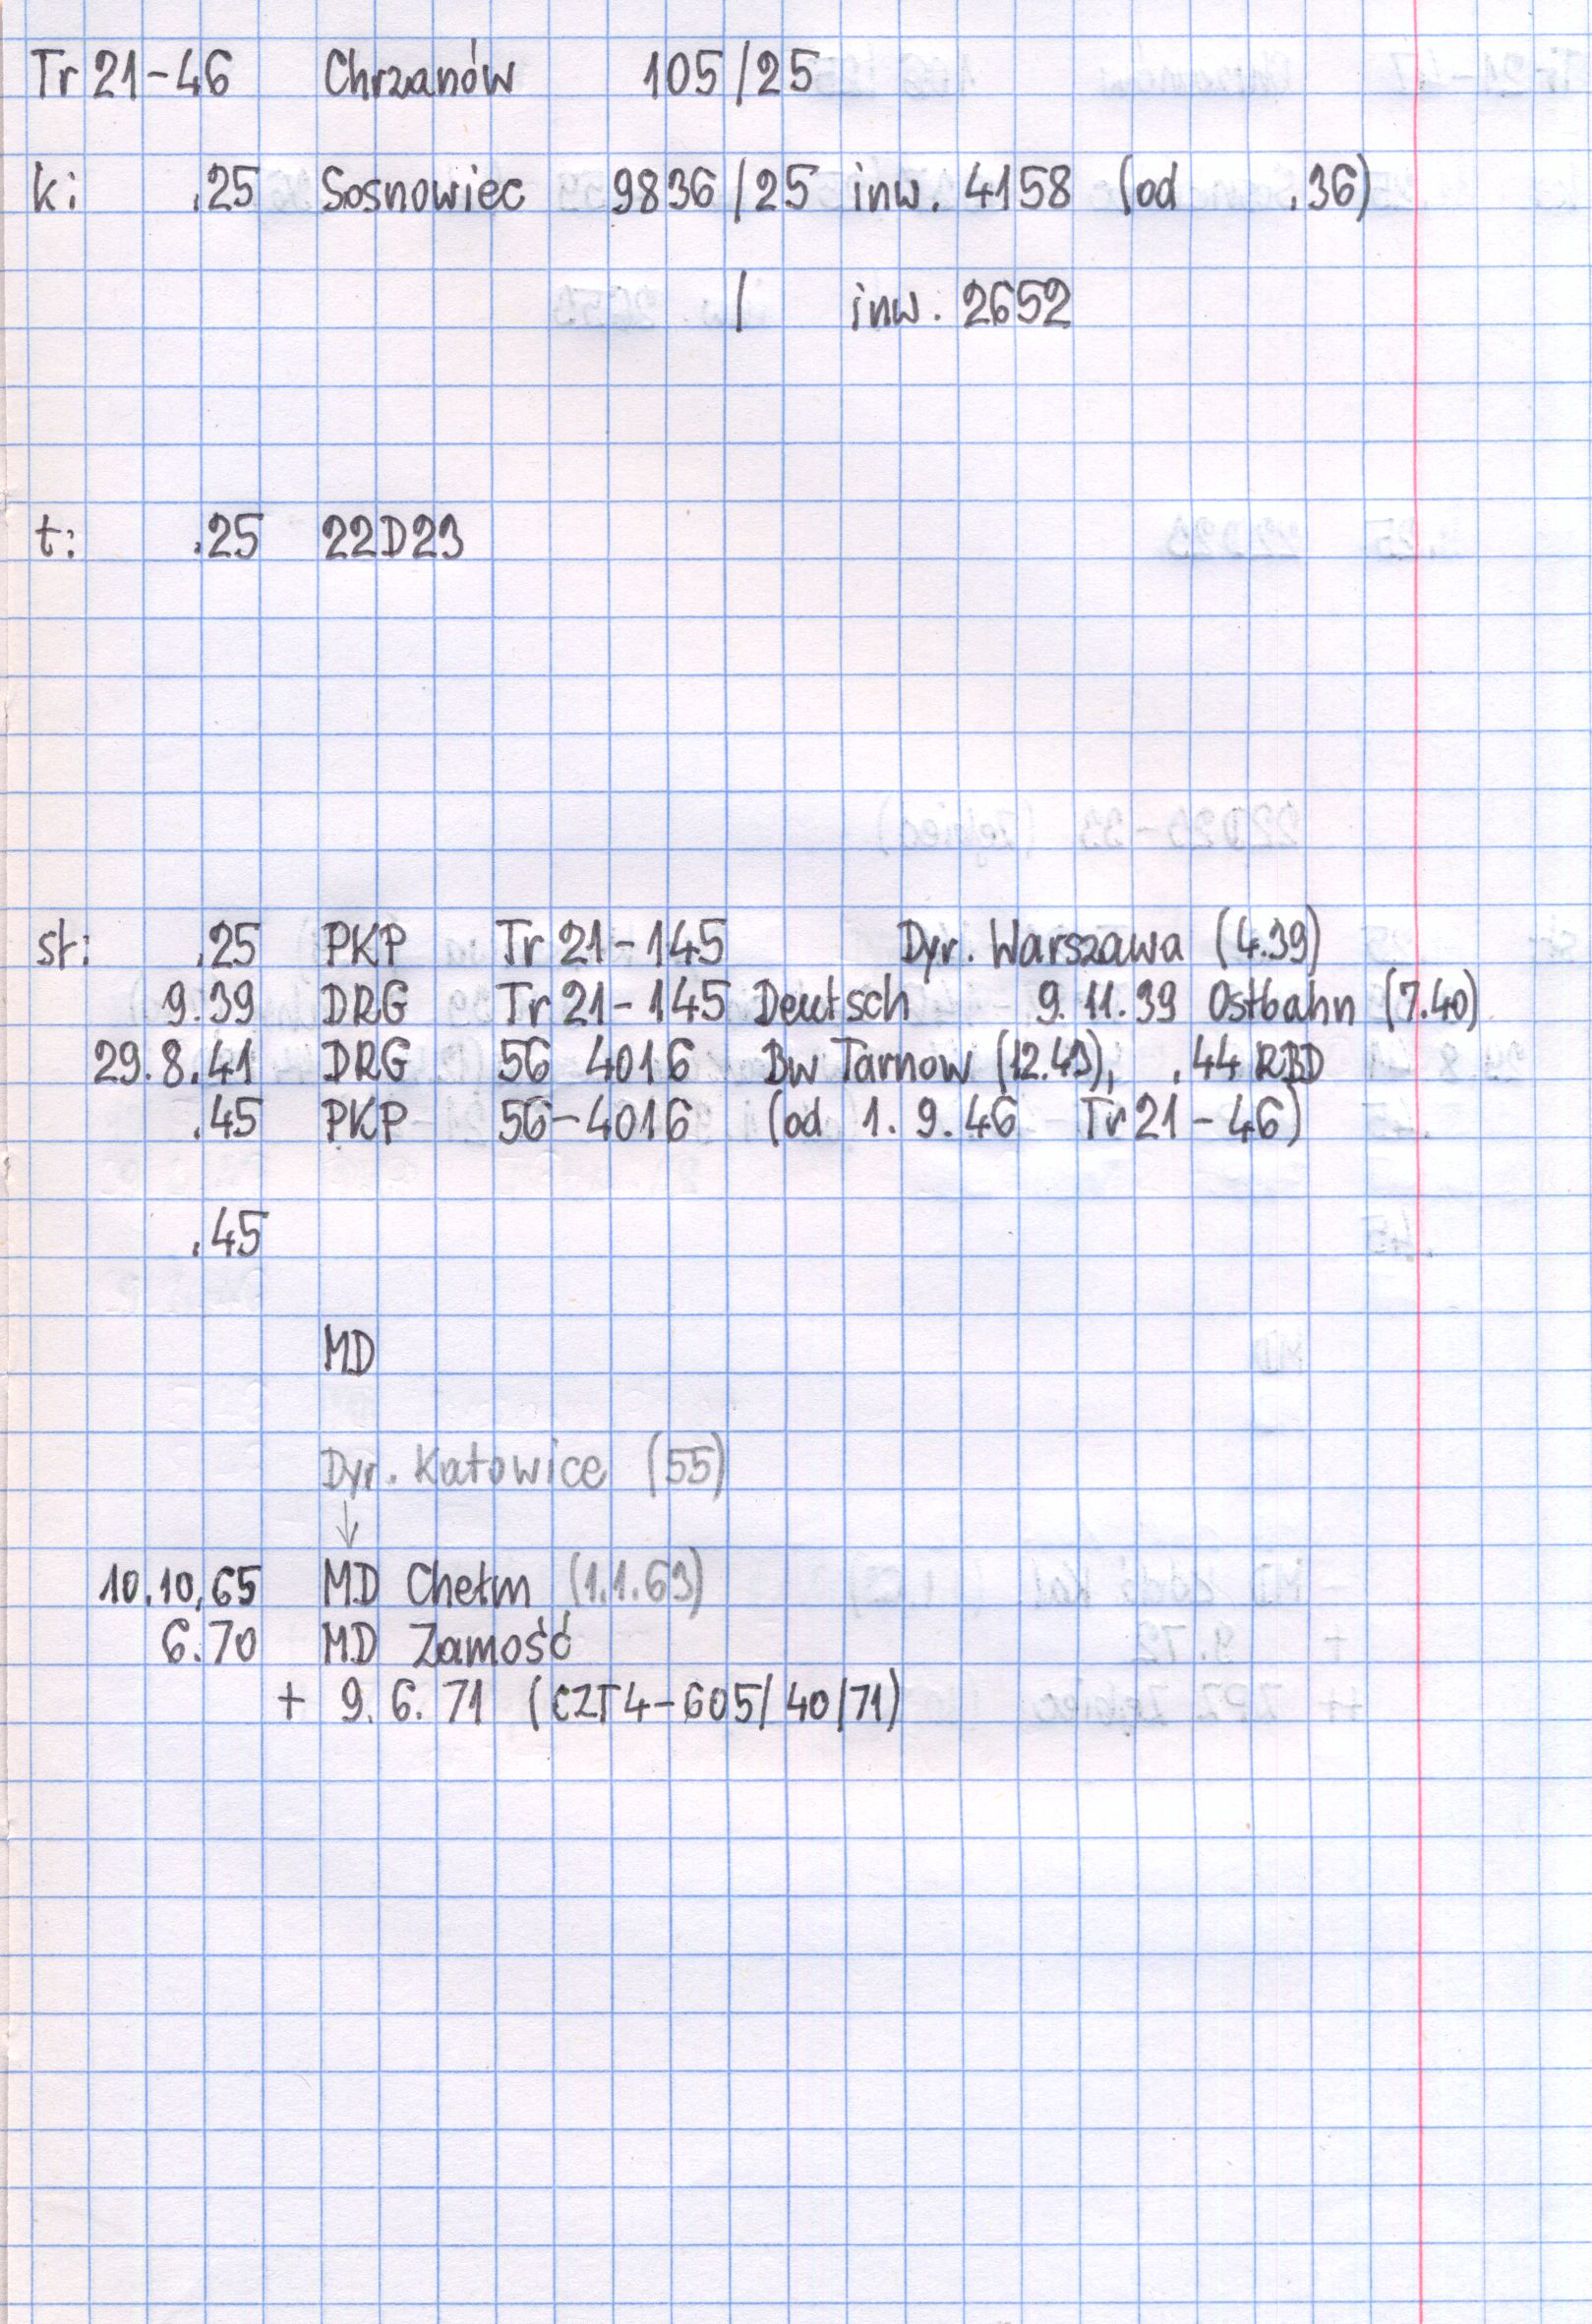 Tr 21-46 Chrzanów 105/25
k: .25 Sosnowiec 9836/25 inw. 4158 (od .36)
/ inw. 2652
t: .25 22D23
st: .25 PKP Tr 21-145 Dyr. Warszawa (4.39)
9.39 DRG Tr 21-145 Deutsch 9.11.39 Ostbahn (7.40)
29.8.41 DRG 56 4016 Bw Tarnow (12.43), .44 RBD
.45 PKP 56-4016 (od 1.9.46 Tr 21-46)
.45
MD
Dyr. Katowice (55)
↓
10.10.65 MD Chełm (1.1.63)
6.70 MD Zamość
+ 9.6.71 (CZT4-605/40/71)